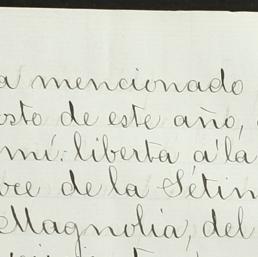 a mencionado
osto de este año,
mí: liberta á la
bre de la Sétim
Magnolia, del